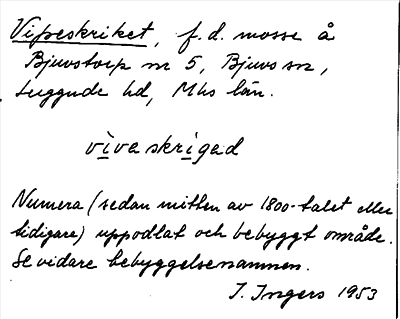 Vipeskriket, f.d. mosse å
Bjuvstorp nr 5, Bjuvs sn,
Luggude hd, Mhs län.
vìvaskrìgad
Numera (sedan mitten av 1800-talet eller
tidigare) uppodlat och bebyggt område.
Se vidare bebyggelsenamnen.
I. Ingers 1953